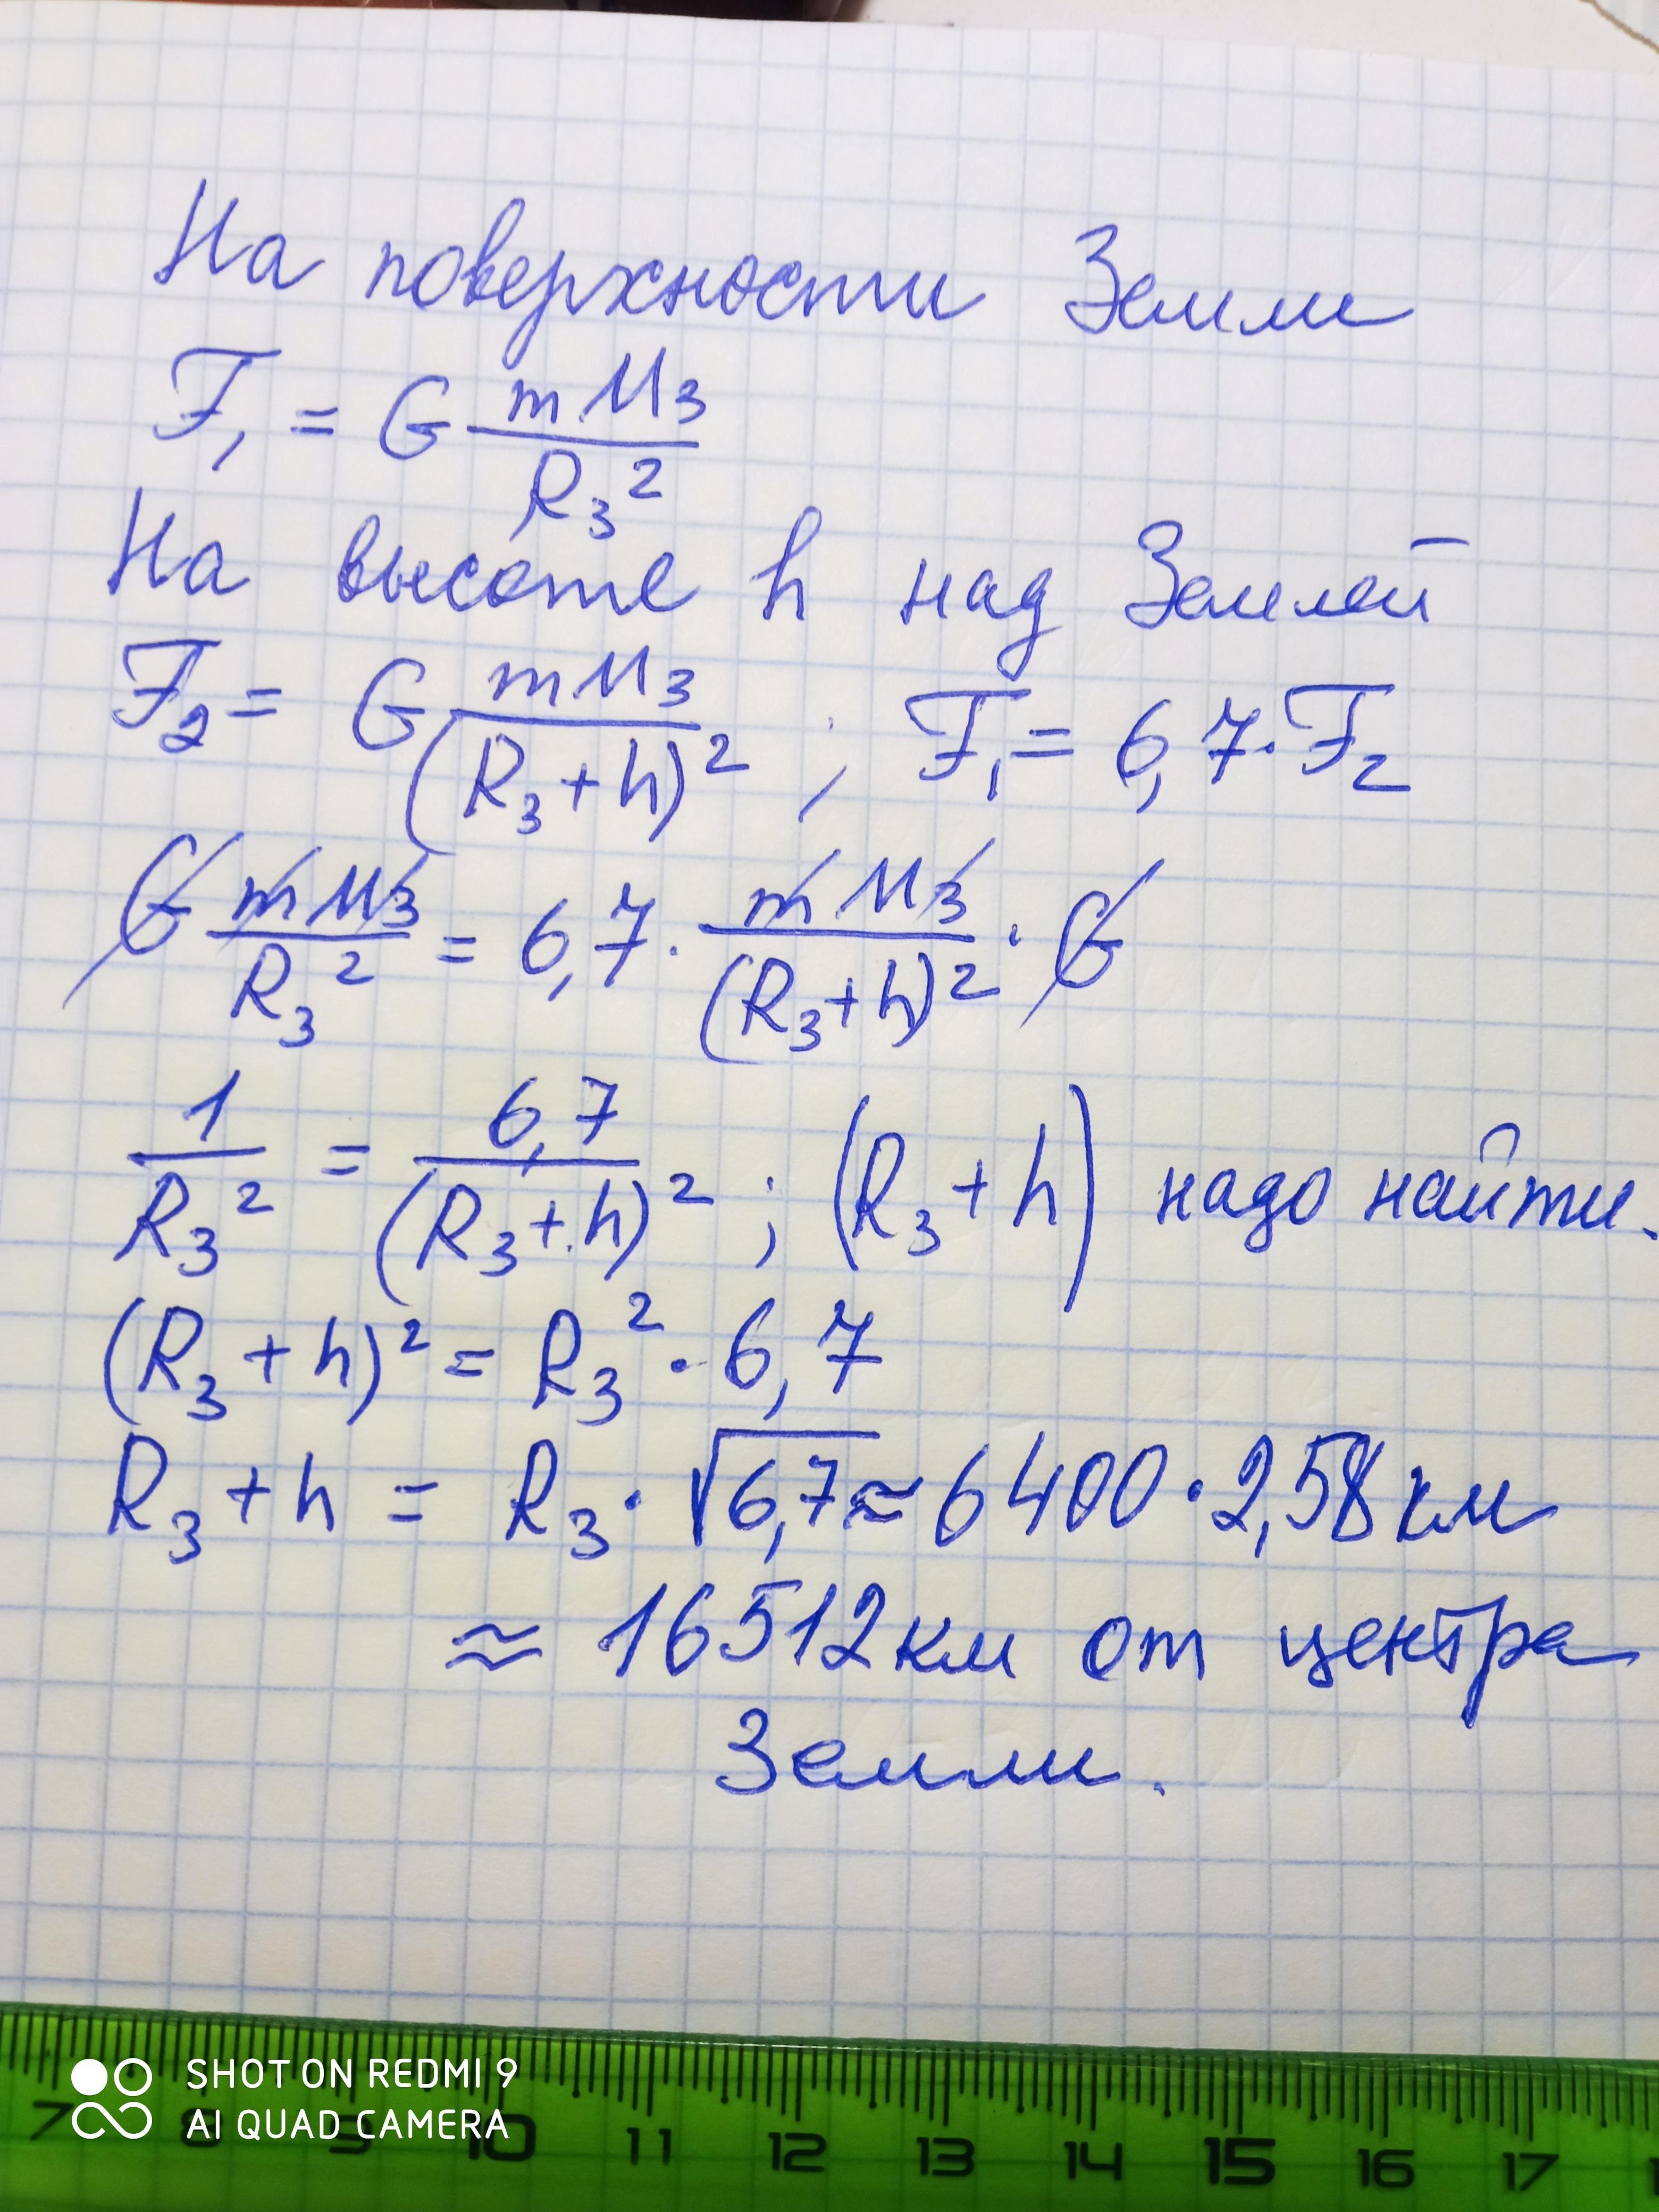 На поверхности Земли
F₁ = G mM₃/R₃²
На высоте h над Землей
F₂ = G mM₃/(R₃+h)² ; F₁ = 6,7·F₂
G mM₃/R₃² = 6,7 · mM₃/(R₃+h)² · G
1/R₃² = 6,7/(R₃+h)² ; (R₃+h) надо найти.
(R₃+h)² = R₃² · 6,7
R₃+h = R₃ · √6,7 ≈ 6400 · 2,58 км
≈ 16512 км от центра
Земли.
SHOT ON REDMI 9
AI QUAD CAMERA
7 8 9 10 11 12 13 14 15 16 17